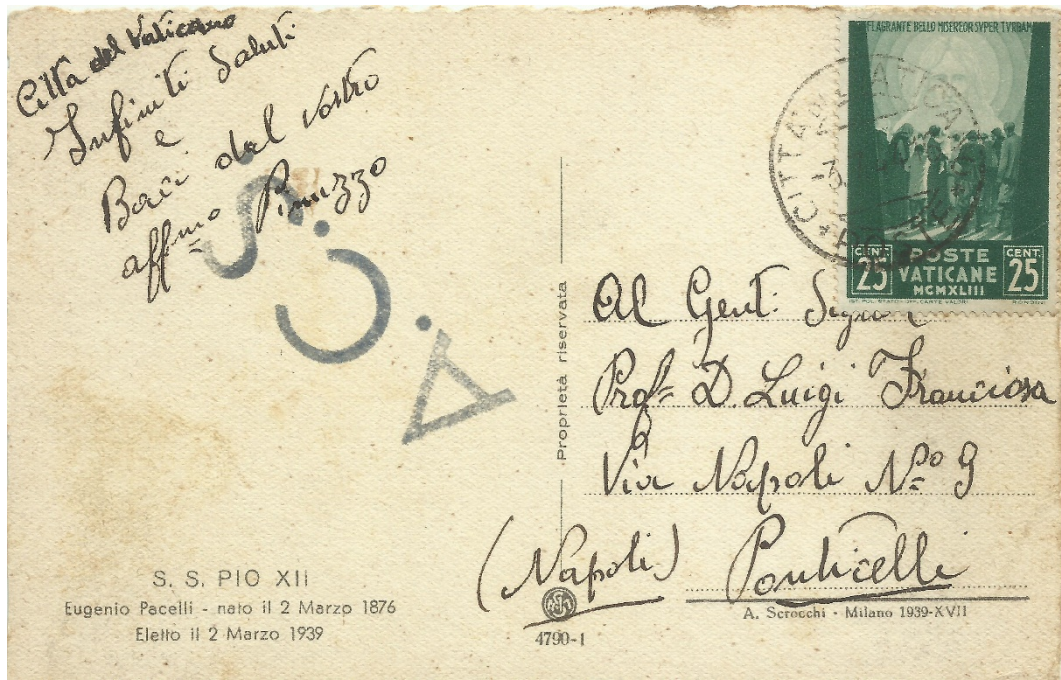 Città del Vaticano
Infiniti Saluti
e
Baci dal vostro
affmo Pinuzzo
S.C.A
S. S. PIO XII
Eugenio Pacelli - nato il 2 Marzo 1876
Eletto il 2 Marzo 1939
Proprietà riservata
4790-1
FLAGRANTE BELLO MISEREOR SVPER TVRBAM
CENT. 25
POSTE
VATICANE
MCMXLIII
CENT. 25
CITTÀ VATICANO
POSTE
Al Gent. Signor
Prof. D. Luigi Franciosa
Via Napoli No 9
(Napoli) Ponticelli
A. Scrocchi - Milano 1939-XVII